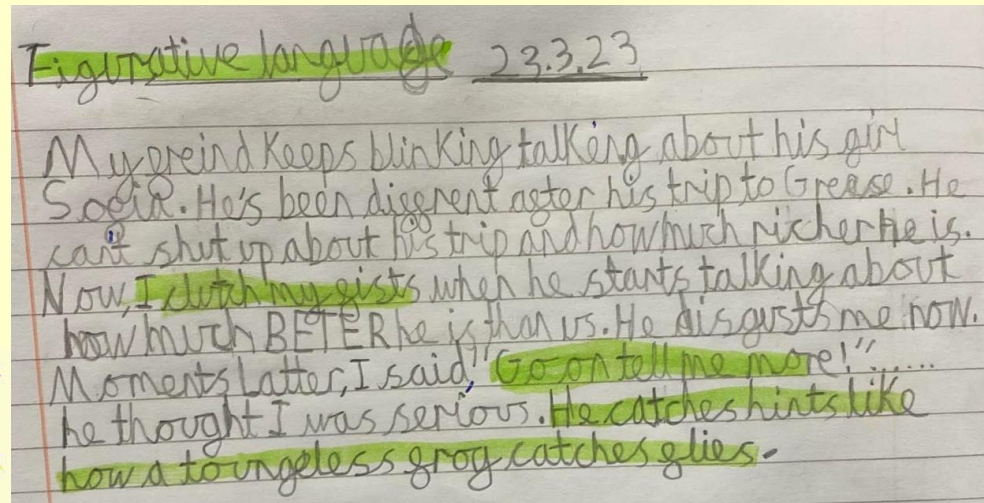 Figurative language 23.3.23
My freind Keeps blinking talking about his girl
Sofia. He's been diffrent after his trip to Grease. He
can't shut up about his trip and how much richer He is.
Now, I clutch my fists when he starts talking about
how much BETER he is than us. He disgusts me now.
Moments Latter, I said, "Go on tell me more!"......
he thought I was serious. He catches hints like
how a toungeless frog catches flies.